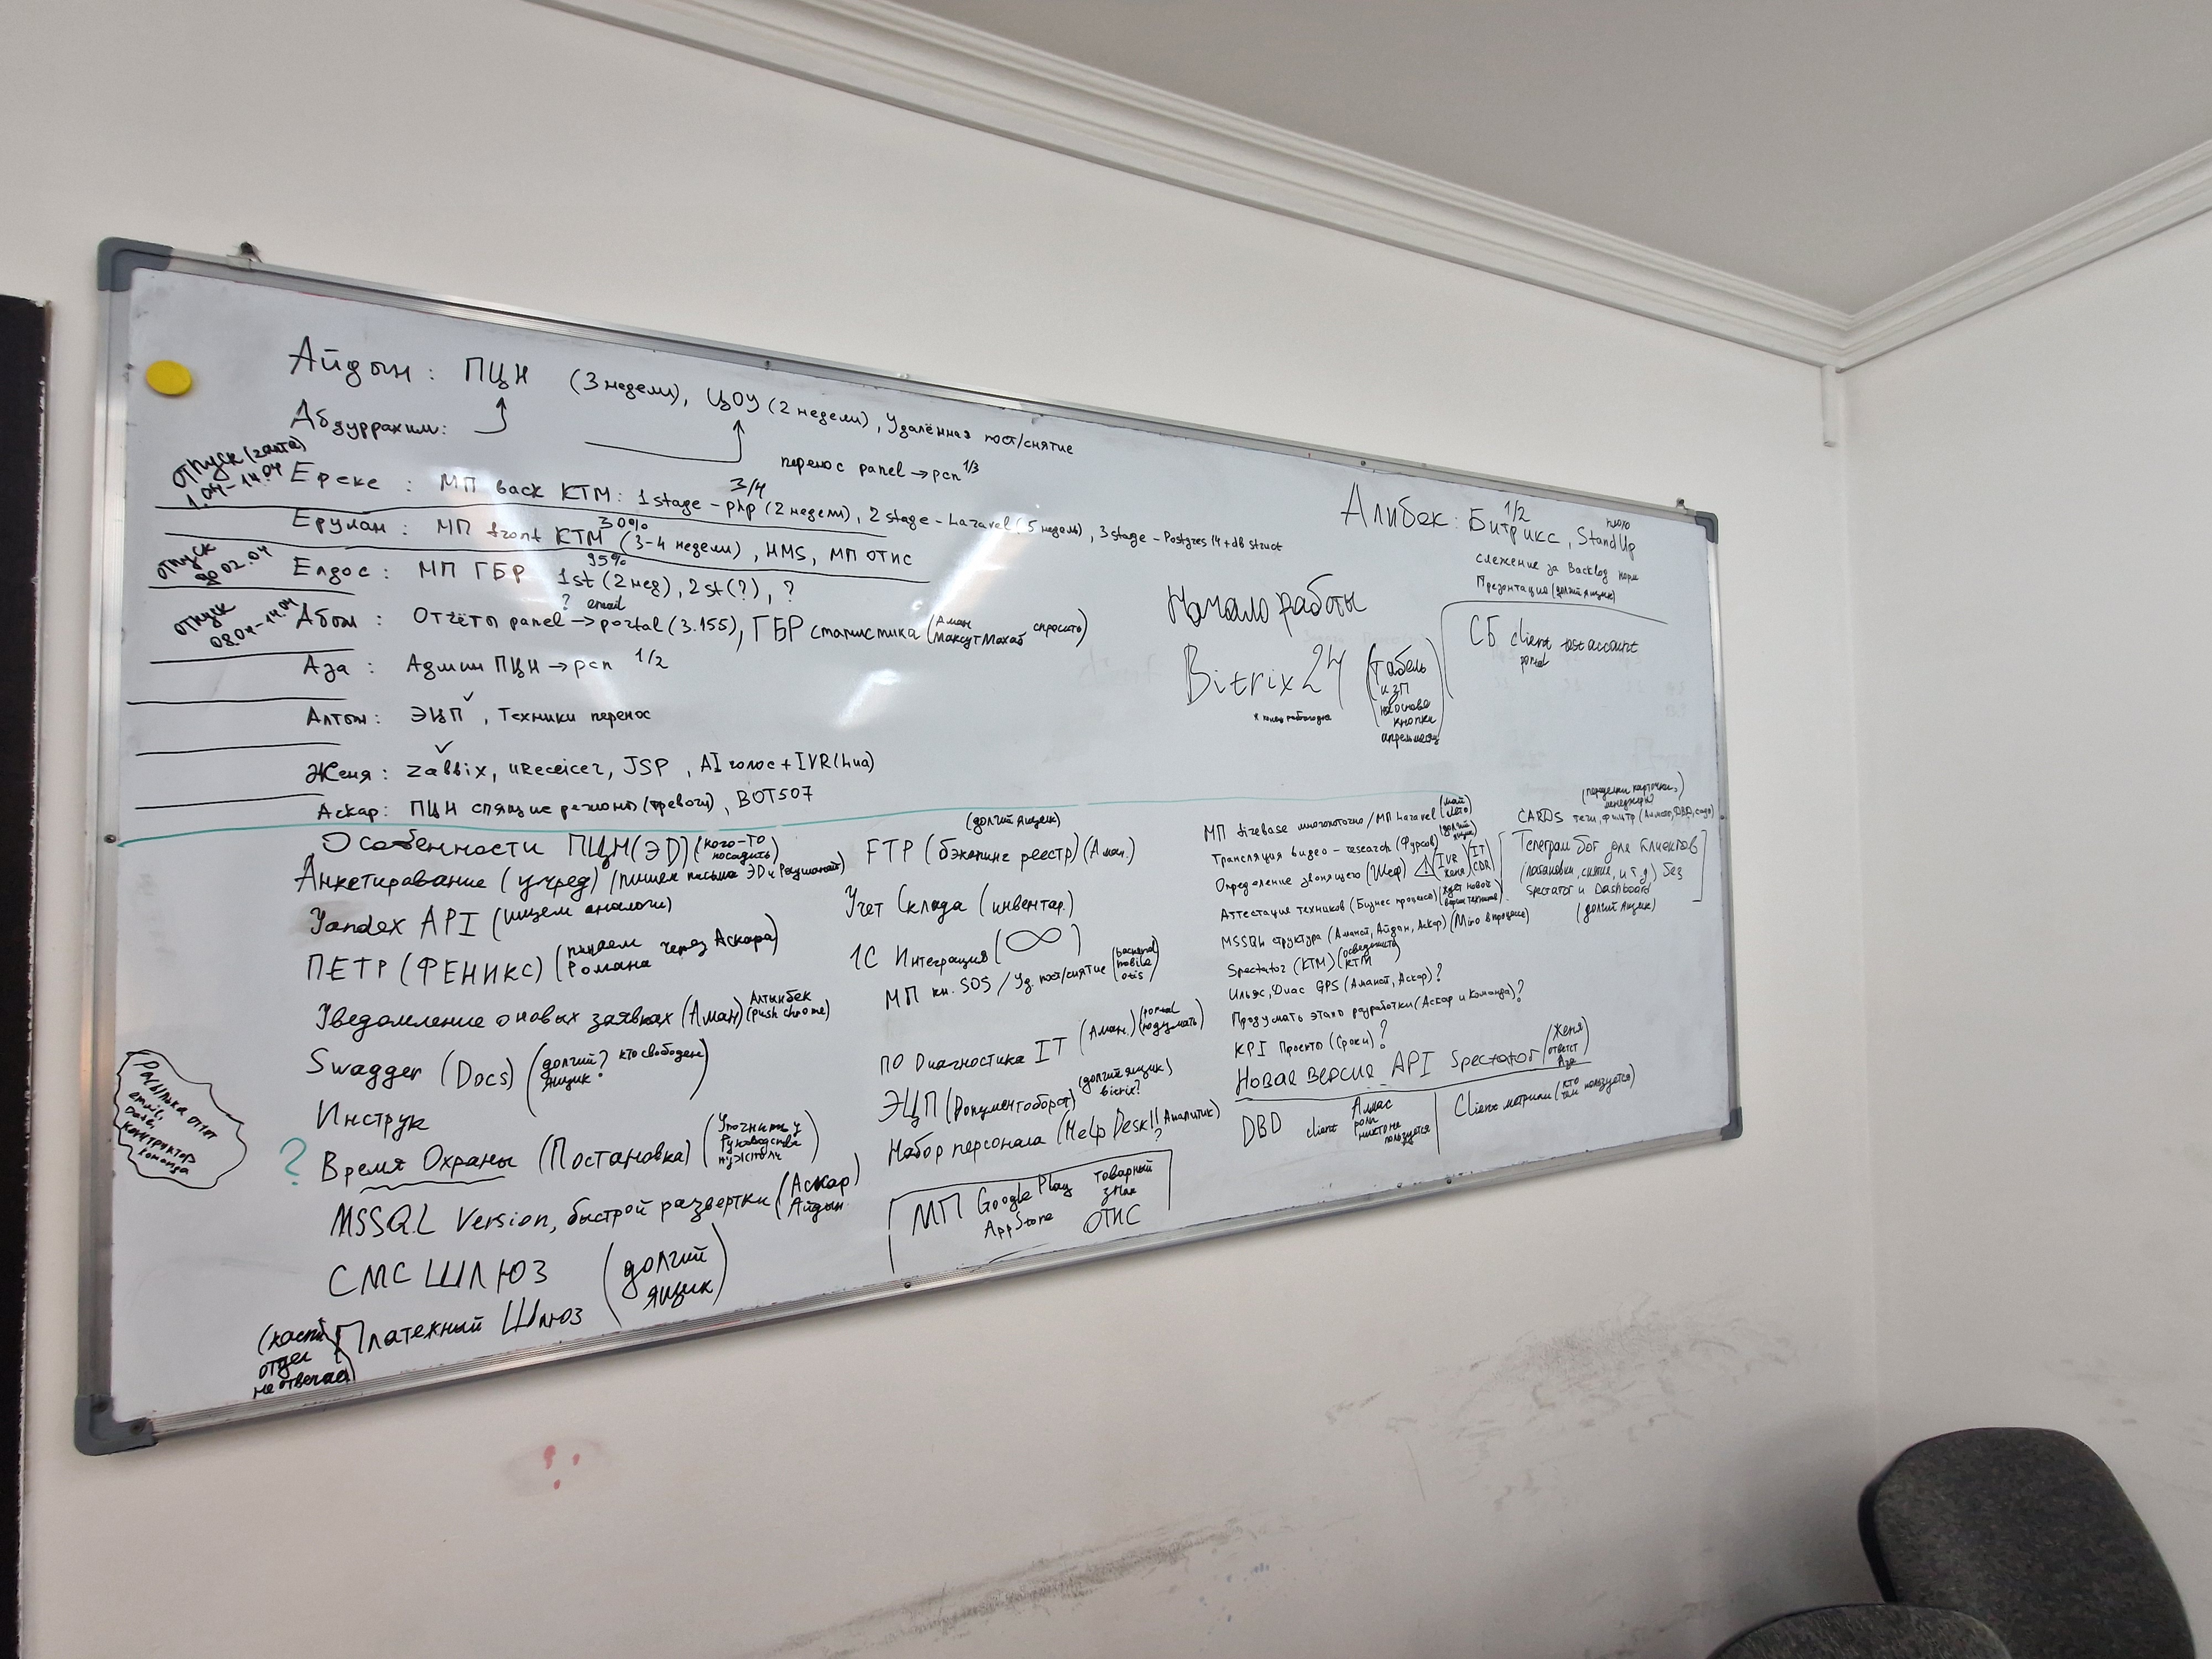 Айдын: ПЦН (3 недели), ЦОУ (2 недели), Удалённая пост/снятие
Абдуррахим:
перенос panel → pcn 1/3
отпуск
1.04-14.04
Ереке: МП back КТМ: 1 stage - php (2 недели), 2 stage - Laravel (5 недель), 3 stage - Postgres 14 + db struct
3/4
Ерулан: МП front КТМ (3-4 недели), HMS, МП ОТИС
30%
отпуск
до 02.04
Елдос: МП ГБР 1st (2 нед), 2st (?), ?
95%
отпуск
08.04-14.04
? email
Абон: Отчёты panel → portal (3.155), ГБР статистика (Аман Максут Махаб спросить)
Аза: Админ ПЦН → pcn 1/2
Алтын: ЭЦП ✓, Техники перенос
Женя: Zabbix ✓, uReceicer, JSP, AI голос + IVR (Lua)
Аскар: ПЦН спящие регионы (тревоги), BOT507
Алибек: Битрикс, StandUp
1/2
слежение за Backlog норм
Презентация (долгий ящик)
Начало работы
Bitrix24
(табель
КЗП
на основе
кнопки
СБ client test account
portal
Особенности ПЦН (ЭД) (кого-то посадить)
Анкетирование (учред) / пишем письма ЭД и Раушаной)
Yandex API (ищем аналоги)
ПЕТР (ФЕНИКС) (пинаем Романа через Аскара)
Уведомление о новых заявках (Аман) (Алтынбек push chrome)
Swagger (Docs) (долгий ящик? кто свободен)
Инструк
? Время Охраны (Постановка) (Уточнить у Руководства нужно ли)
MSSQL Version, быстрой развертки (Аскар Айдын
СМС ШЛЮЗ (долгий ящик)
Платежный Шлюз
отдел
не отвечал)
Рассылка отчет
email,
контрактор
команда
(долгий ящик)
FTP (бэкапинг реестр) (Аман.)
Учет Склада (инвентар.)
1С Интеграция (∞)
МП кн. SOS / Уд. пост/снятие (backend mobile otis)
ПО Диагностика IT (Аман.) (portal подумать)
ЭЦП (Документооборот) (долгий ящик) bitrix?
Набор персонала (Help Desk!! Аналитик)
?
МП Google Play
App Store
товарный
знак
ОТИС
МП firebase многопоточно / МП Laravel (май лето)
Трансляция видео - research (Фурсов) (долгий ящик)
Определение звонящего (Шеф) ⚠ (IVR Женя) (IT CDR)
Аттестация техников (Бизнес процесс) (ждет новой версии техников)
MSSQL структура (Аманат, Айдын, Аскар) (Miro в процессе)
Spectator (КТМ) (осведомить КТМ)
Ильяс, Диас GPS (Аманат, Аскар)?
Продумать этапо разработки (Аскар и Команда)?
KPI Проекты (Сроки)?
Новая версия API Spectator (Женя ответст Аза
DBD client
Алмас
роли
никто не
пользуется
Client метрики (кто там пользуется)
(переделки карточки, менеджеры)
CARDS теги, фильтр
Телеграм бот для клиентов
(постановки, снятие, и т.д.) без
Spectator и Dashboard
(долгий ящик)